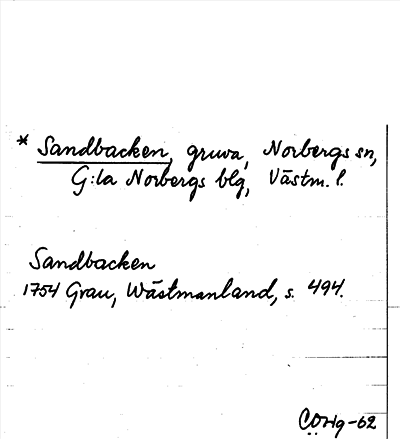 * Sandbacken, gruva, Norbergs sn,
G:la Norbergs blg, Västm. l.
Sandbacken
1754 Grau, Wästmanland, s. 494.